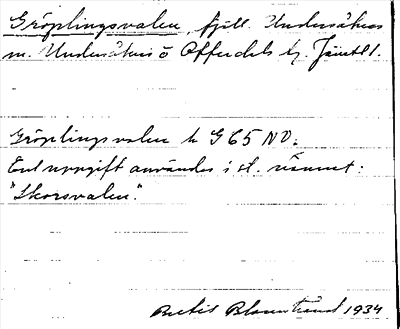 Gröplingsvalen, fjäll. Undersåkers
m. Undersåkers o Offerdals tg. Jämtl.
Gröplingsvalen h G65 NV.
Enl uppgift användes i st. namnet:
"Skorsvalen".
Bertil Blomstrand 1934